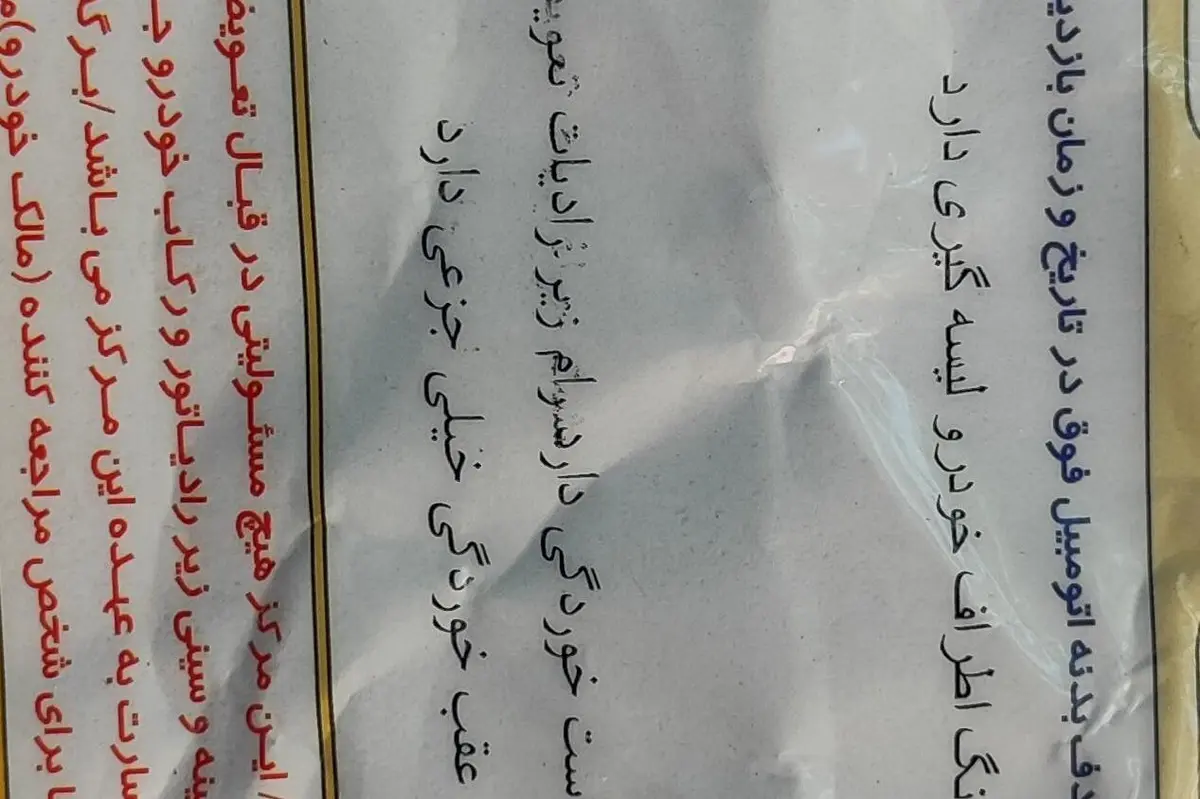 بدنه اتومبیل فوق در تاریخ و زمان بازدید
اطراف خودرو لیسه گیری دارد
ست خوردگی دارد سرام زیر نرادیات تعویض
عقب خوردگی خیلی جزعی دارد
/ ایـن مرکز هیچ مسئـولیتی در قبـال تعـویض
ینه و سینی زیر رادیـاتور و رکـاب خودرو جـ
سارت به عهـده این مـرکز می بـاشد /بـرگـ
ا برای شخص مراجعه کننده (مالک خودرو)مـ